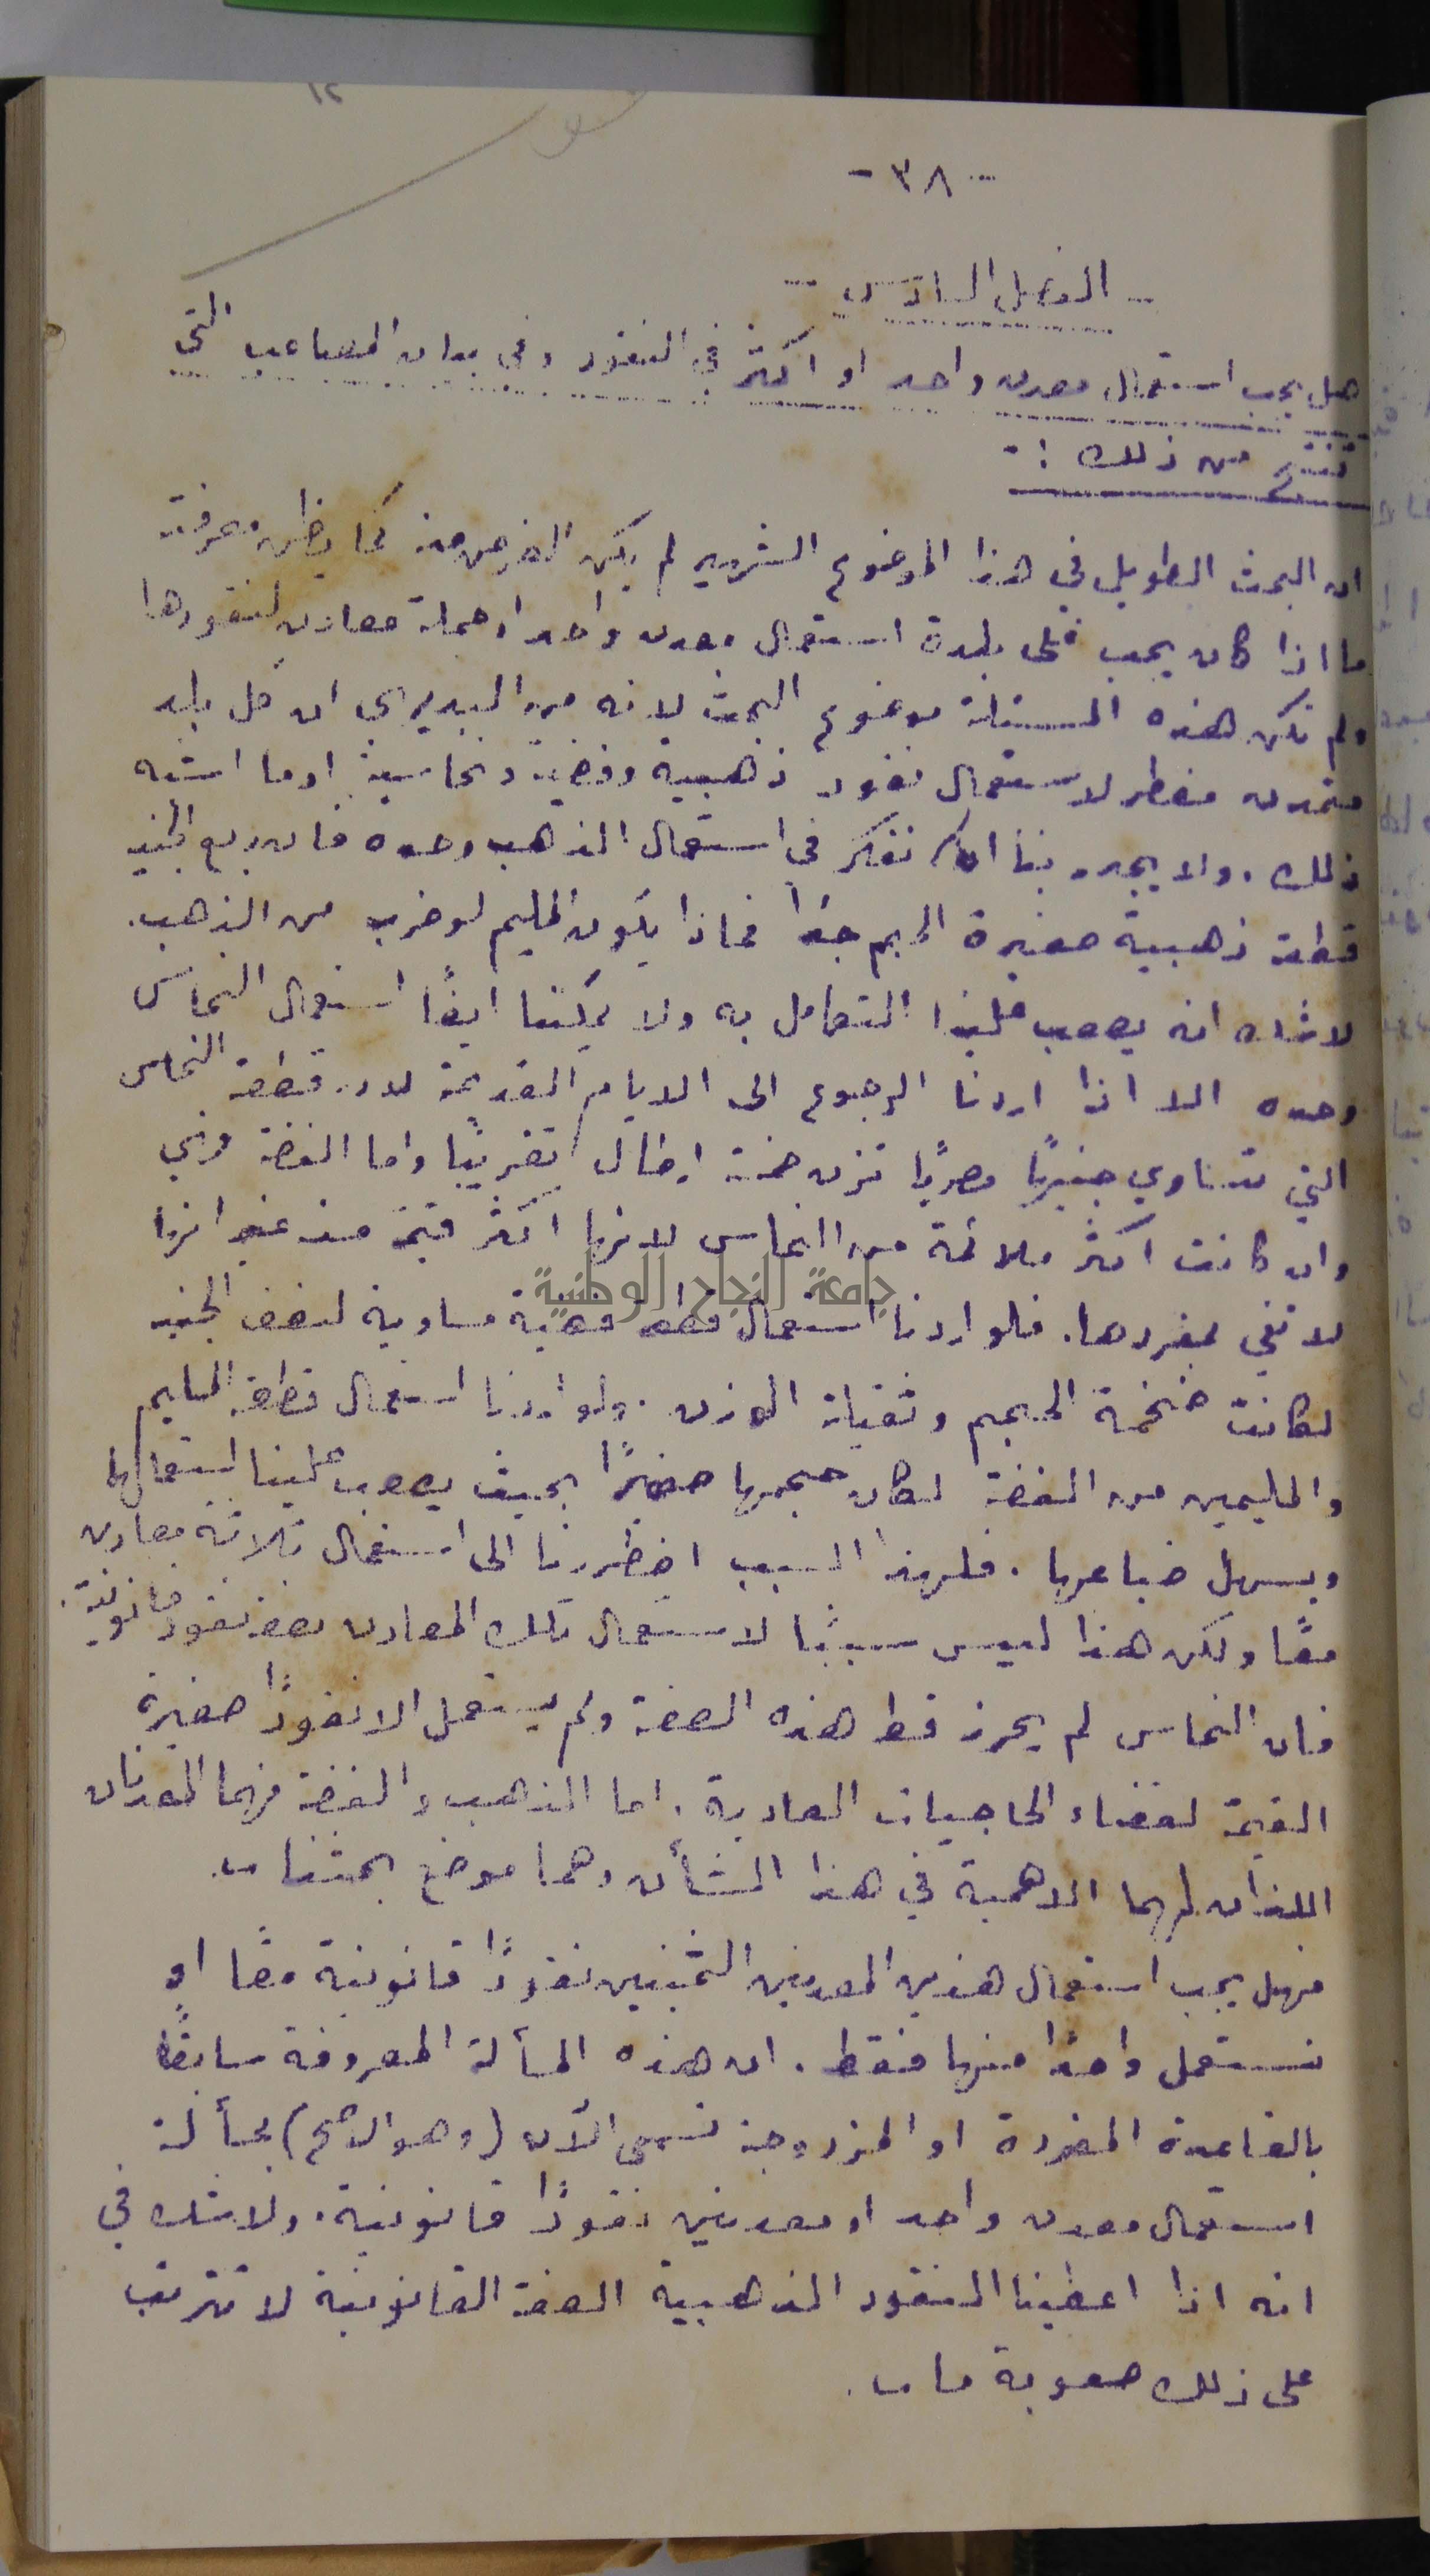 -٣٨-
- الفصل السادس -
هل يجب استعمال معدن واحد او اكثر في النقود وفي بيان المصاعب التي
تنتج من ذلك :-
ان البحث الطويل في هذا الموضوع الشهير لم يكن الغرض منه كما يظن معرفة
ما اذا كان يجب على بلدة استعمال معدن واحد او جملة معادن لنقودها
ولم تكن هذه المسئلة موضوع البحث لانه من البديهي ان كل بلد
متمدن مضطر لاستعمال نقود ذهبية وفضية ونحاسية او ما اشبه
ذلك . ولا يجدر بنا ان نفكر في استعمال الذهب وحده فان ربع الجنيه
قطعة ذهبية صغيرة الحجم جدًا فماذا يكون المليم لو ضرب من الذهب.
لا شك انه يصعب علينا التعامل به ولا يمكننا ايضًا استعمال النحاس
وحده الا اذا اردنا الرجوع الى الايام القديمة لان قطعة النحاس
التي تساوي جنيهًا مصريًا تزن خمسة ارطال تقريبًا واما الفضة فهي
وان كانت اكثر ملائمة من النحاس لانها اكثر قيمة منه غير انها
لا تفي بمفردها. فلو اردنا استعمال قطعة فضية مساوية لنصف الجنيه
جامعة النجاح الوطنية
لكانت ضخمة الحجم وثقيلة الوزن . ولو اردنا استعمال قطعة المليم
والمليمين من الفضة لكان حجمها صغيرًا بحيث يصعب علينا استعمالها
ويسهل ضياعها . فلهذا السبب اضطررنا الى استعمال ثلاثة معادن
معًا ولكن هذا ليس سببًا لاستعمال تلك المعادن بصفة نقود قانونية.
فان النحاس لم يحرز قط هذه الصفة ولم يستعمل الا نقودًا صغيرة
القيمة لقضاء الحاجيات العادية . اما الذهب والفضة فهما المعدنان
اللذان لهما الاهمية في هذا الشأن وهما موضع بحثنا .
فهل يجب استعمال هذين المعدنين الثمينين نقودًا قانونية معًا او
نستعمل واحدًا منها فقط . ان هذه المسألة المعروفة سابقًا
بالقاعدة المفردة او المزدوجة تسمى الآن (وهو الاصح) بمسألة
استعمال معدن واحد او معدنين نقودًا قانونية . ولا شك في
انه اذا اعطينا النقود الذهبية الصفة القانونية لا تترتب
على ذلك صعوبة ما .